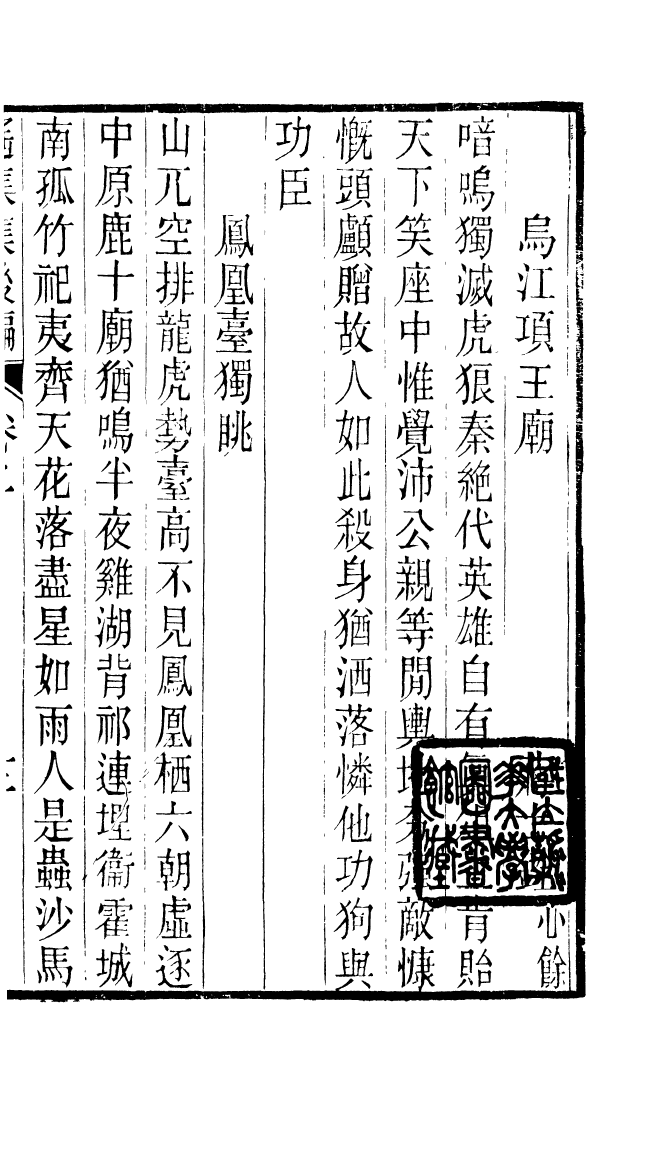 烏江項王廟 心餘
喑嗚獨滅虎狼秦絕代英雄自有肯貽
天下笑座中惟覺沛公親等閒輿敵慷
慨頭顱贈故人如此殺身猶洒落憐他功狗與
功臣
鳳凰臺獨眺
山兀空排龍虎勢臺高不見鳳凰栖六朝虛逐
中原鹿十廟猶鳴半夜雞湖背祁連埋衞霍城
南孤竹祀夷齊天花落盡星如雨人是蟲沙馬